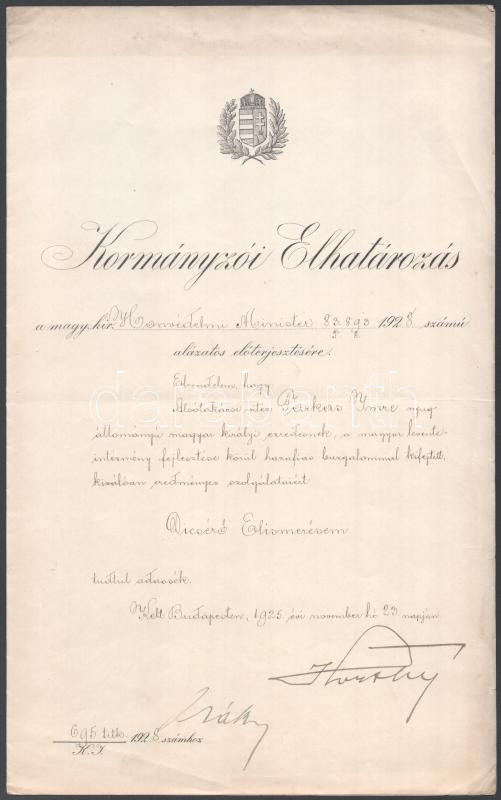 Kormányzói Elhatározás
a magy. kir. Honvédelmi Minister 83.893 1928 számú
alázatos előterjesztésére:
Elrendelem, hogy
Farkers Imre nyug.
állományú magyar királyi ezredesnek, a magyar levente-
intézmény fejlesztése körül hazafias buzgalommal kifejtett
kiválóan eredményes szolgálataiért
Dicsérő Elismerésem
tudtul adassék.
Kelt Budapesten, 1928. évi november hó 23. napján.
Horthy
695 titk. 1928 számhoz
K. I.
darabanth